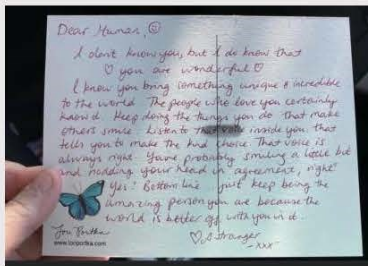 Dear Human, ☺
I don't know you, but I do know that
♡ you are wonderful ♡
I know you bring something unique & incredible
to the world. The people who love you certainly
know it. Keep doing the things you do that make
others smile. Listen to that voice inside you, that
tells you to make the kind choice. That voice is
always right. You're probably smiling a little bit
and nodding your head in agreement, right?
Yes! Bottom line - just keep being the
amazing person you are because the
world is better off with you in it.
♡, A stranger
-xxx-
Lori Portka
www.loriportka.com